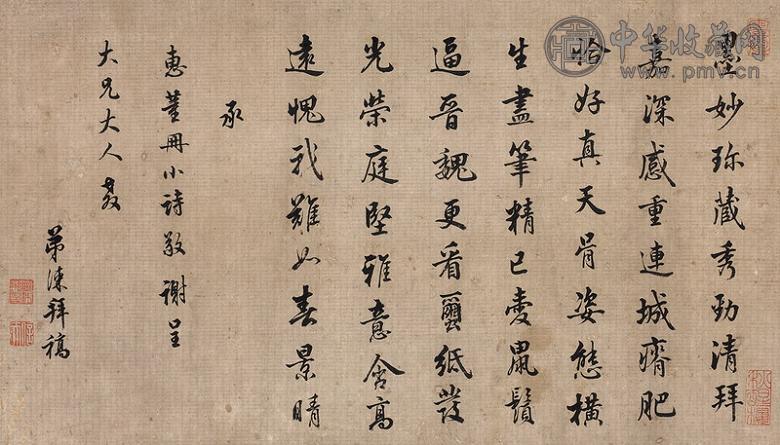 墨妙珎藏秀勁清拜
嘉深感重連城瘠肥
恰好真天骨姿態橫
生盡筆精已變鼠鬚
逼晉魏更看蠒紙發
光榮庭堅雅意含高
遠愧我難如春景晴
承
惠董冊小詩敬謝呈
大兄大人教
弟涑拜稿
中华收藏网
www.pmv.cn